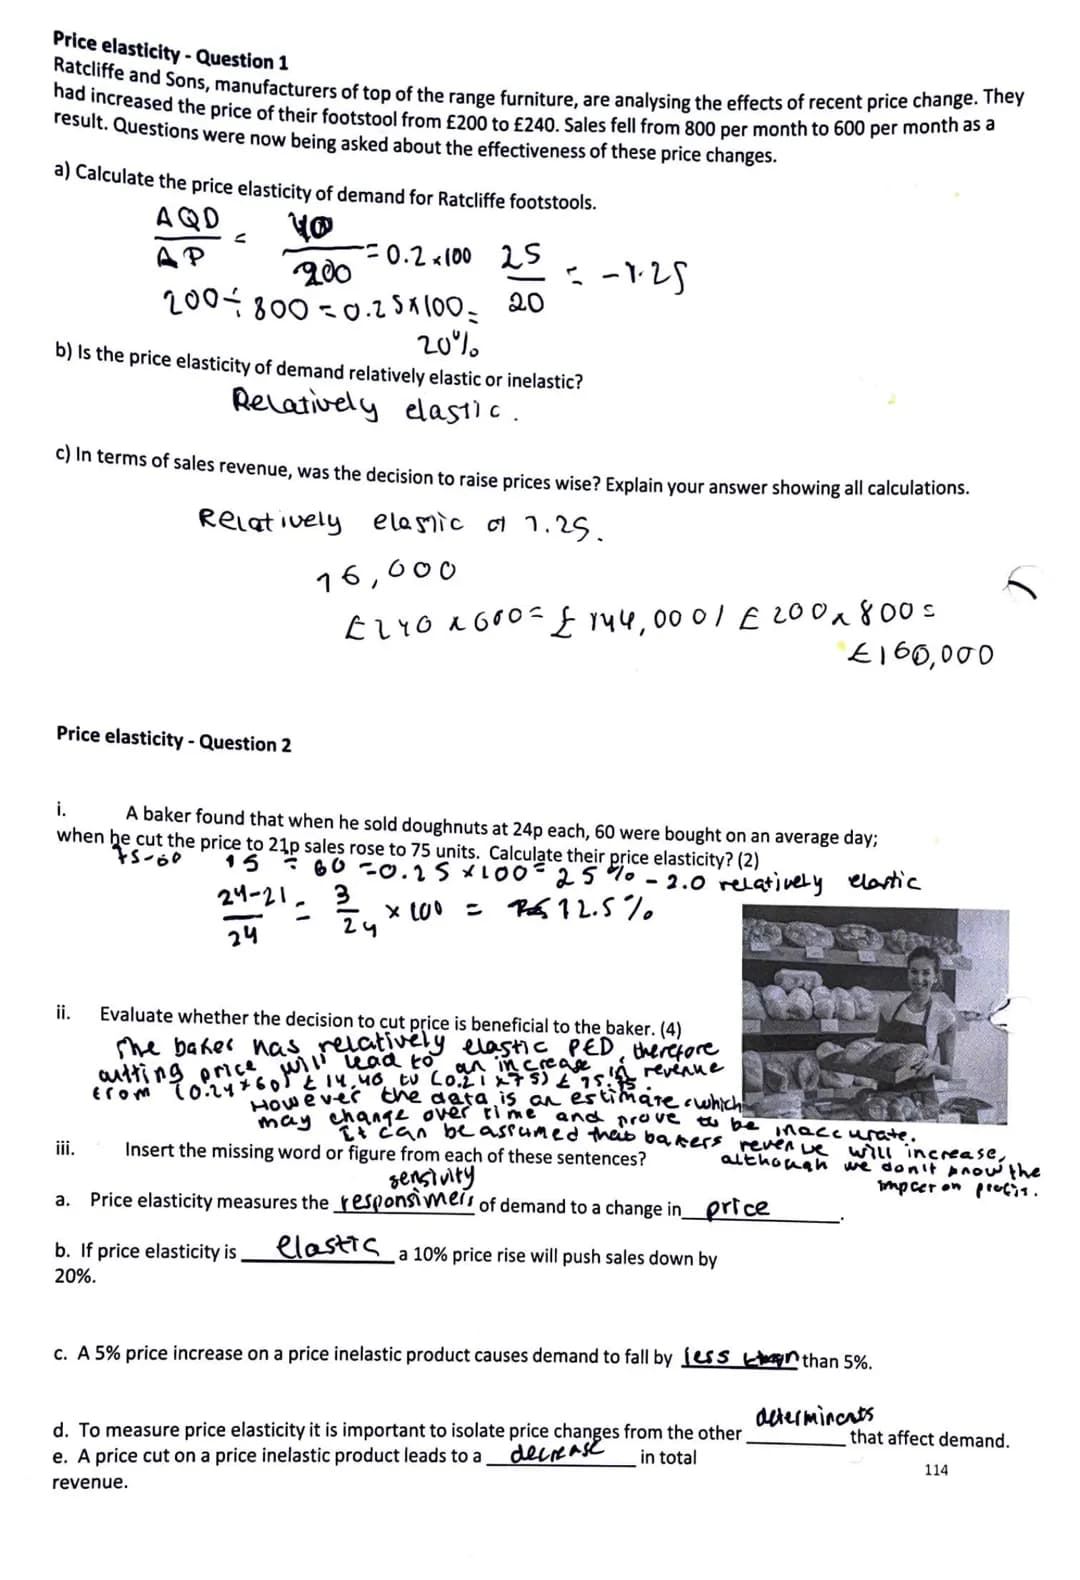 Price elasticity - Question 1
Ratcliffe and Sons, manufacturers of top of the range furniture, are analysing the effects of recent price change. They
had increased the price of their footstool from £200 to £240. Sales fell from 800 per month to 600 per month as a
result. Questions were now being asked about the effectiveness of these price changes.
a) Calculate the price elasticity of demand for Ratcliffe footstools.
ΔQD = 40
ΔP 200 = 0.2 x100 25 = -1.25
200÷800 = 0.25x100= 20
20%
b) Is the price elasticity of demand relatively elastic or inelastic?
Relatively elastic.
c) In terms of sales revenue, was the decision to raise prices wise? Explain your answer showing all calculations.
Relatively elastic at 1.25.
16,000
£240 x 600 = £144,000 / £200 x 800 =
£160,000
Price elasticity - Question 2
i. A baker found that when he sold doughnuts at 24p each, 60 were bought on an average day;
when he cut the price to 21p sales rose to 75 units. Calculate their price elasticity? (2)
75-60 15 ÷ 60 = 0.25 x100 = 25% - 2.0 relatively elastic
24-21 = 3 x 100 = 12.5%
24 24
ii. Evaluate whether the decision to cut price is beneficial to the baker. (4)
The baker has relatively elastic PED, therefore
cutting price will lead to an increase in revenue
from (0.24x60) £14.40 to (0.21x75) £15.75.
However the data is an estimate which
may change over time and prove to be inaccurate.
It can be assumed that bakers revenue will increase,
although we don't know the
impact on profit.
iii. Insert the missing word or figure from each of these sentences?
sensivity
a. Price elasticity measures the responsimeis of demand to a change in price.
b. If price elasticity is elastic a 10% price rise will push sales down by
20%.
c. A 5% price increase on a price inelastic product causes demand to fall by less than than 5%.
determinants
d. To measure price elasticity it is important to isolate price changes from the other that affect demand.
e. A price cut on a price inelastic product leads to a decrease in total
revenue.
114